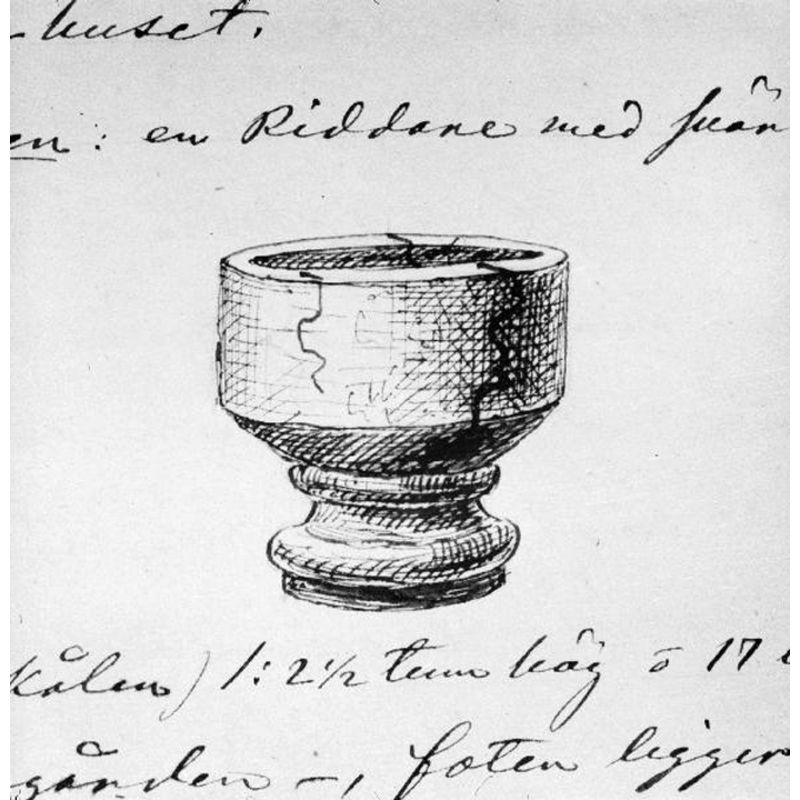 huset.
en: en Riddare med svär
skålen) 1: 2½ tum hög o 17
gården –, foten ligger